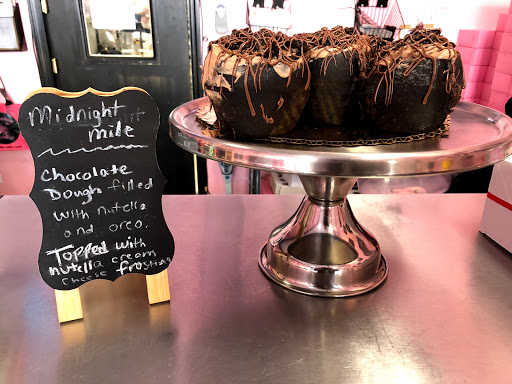 Midnight
mile
Chocolate
Dough filled
with nutella
and oreo.
Topped with
nutella cream
cheese frosting